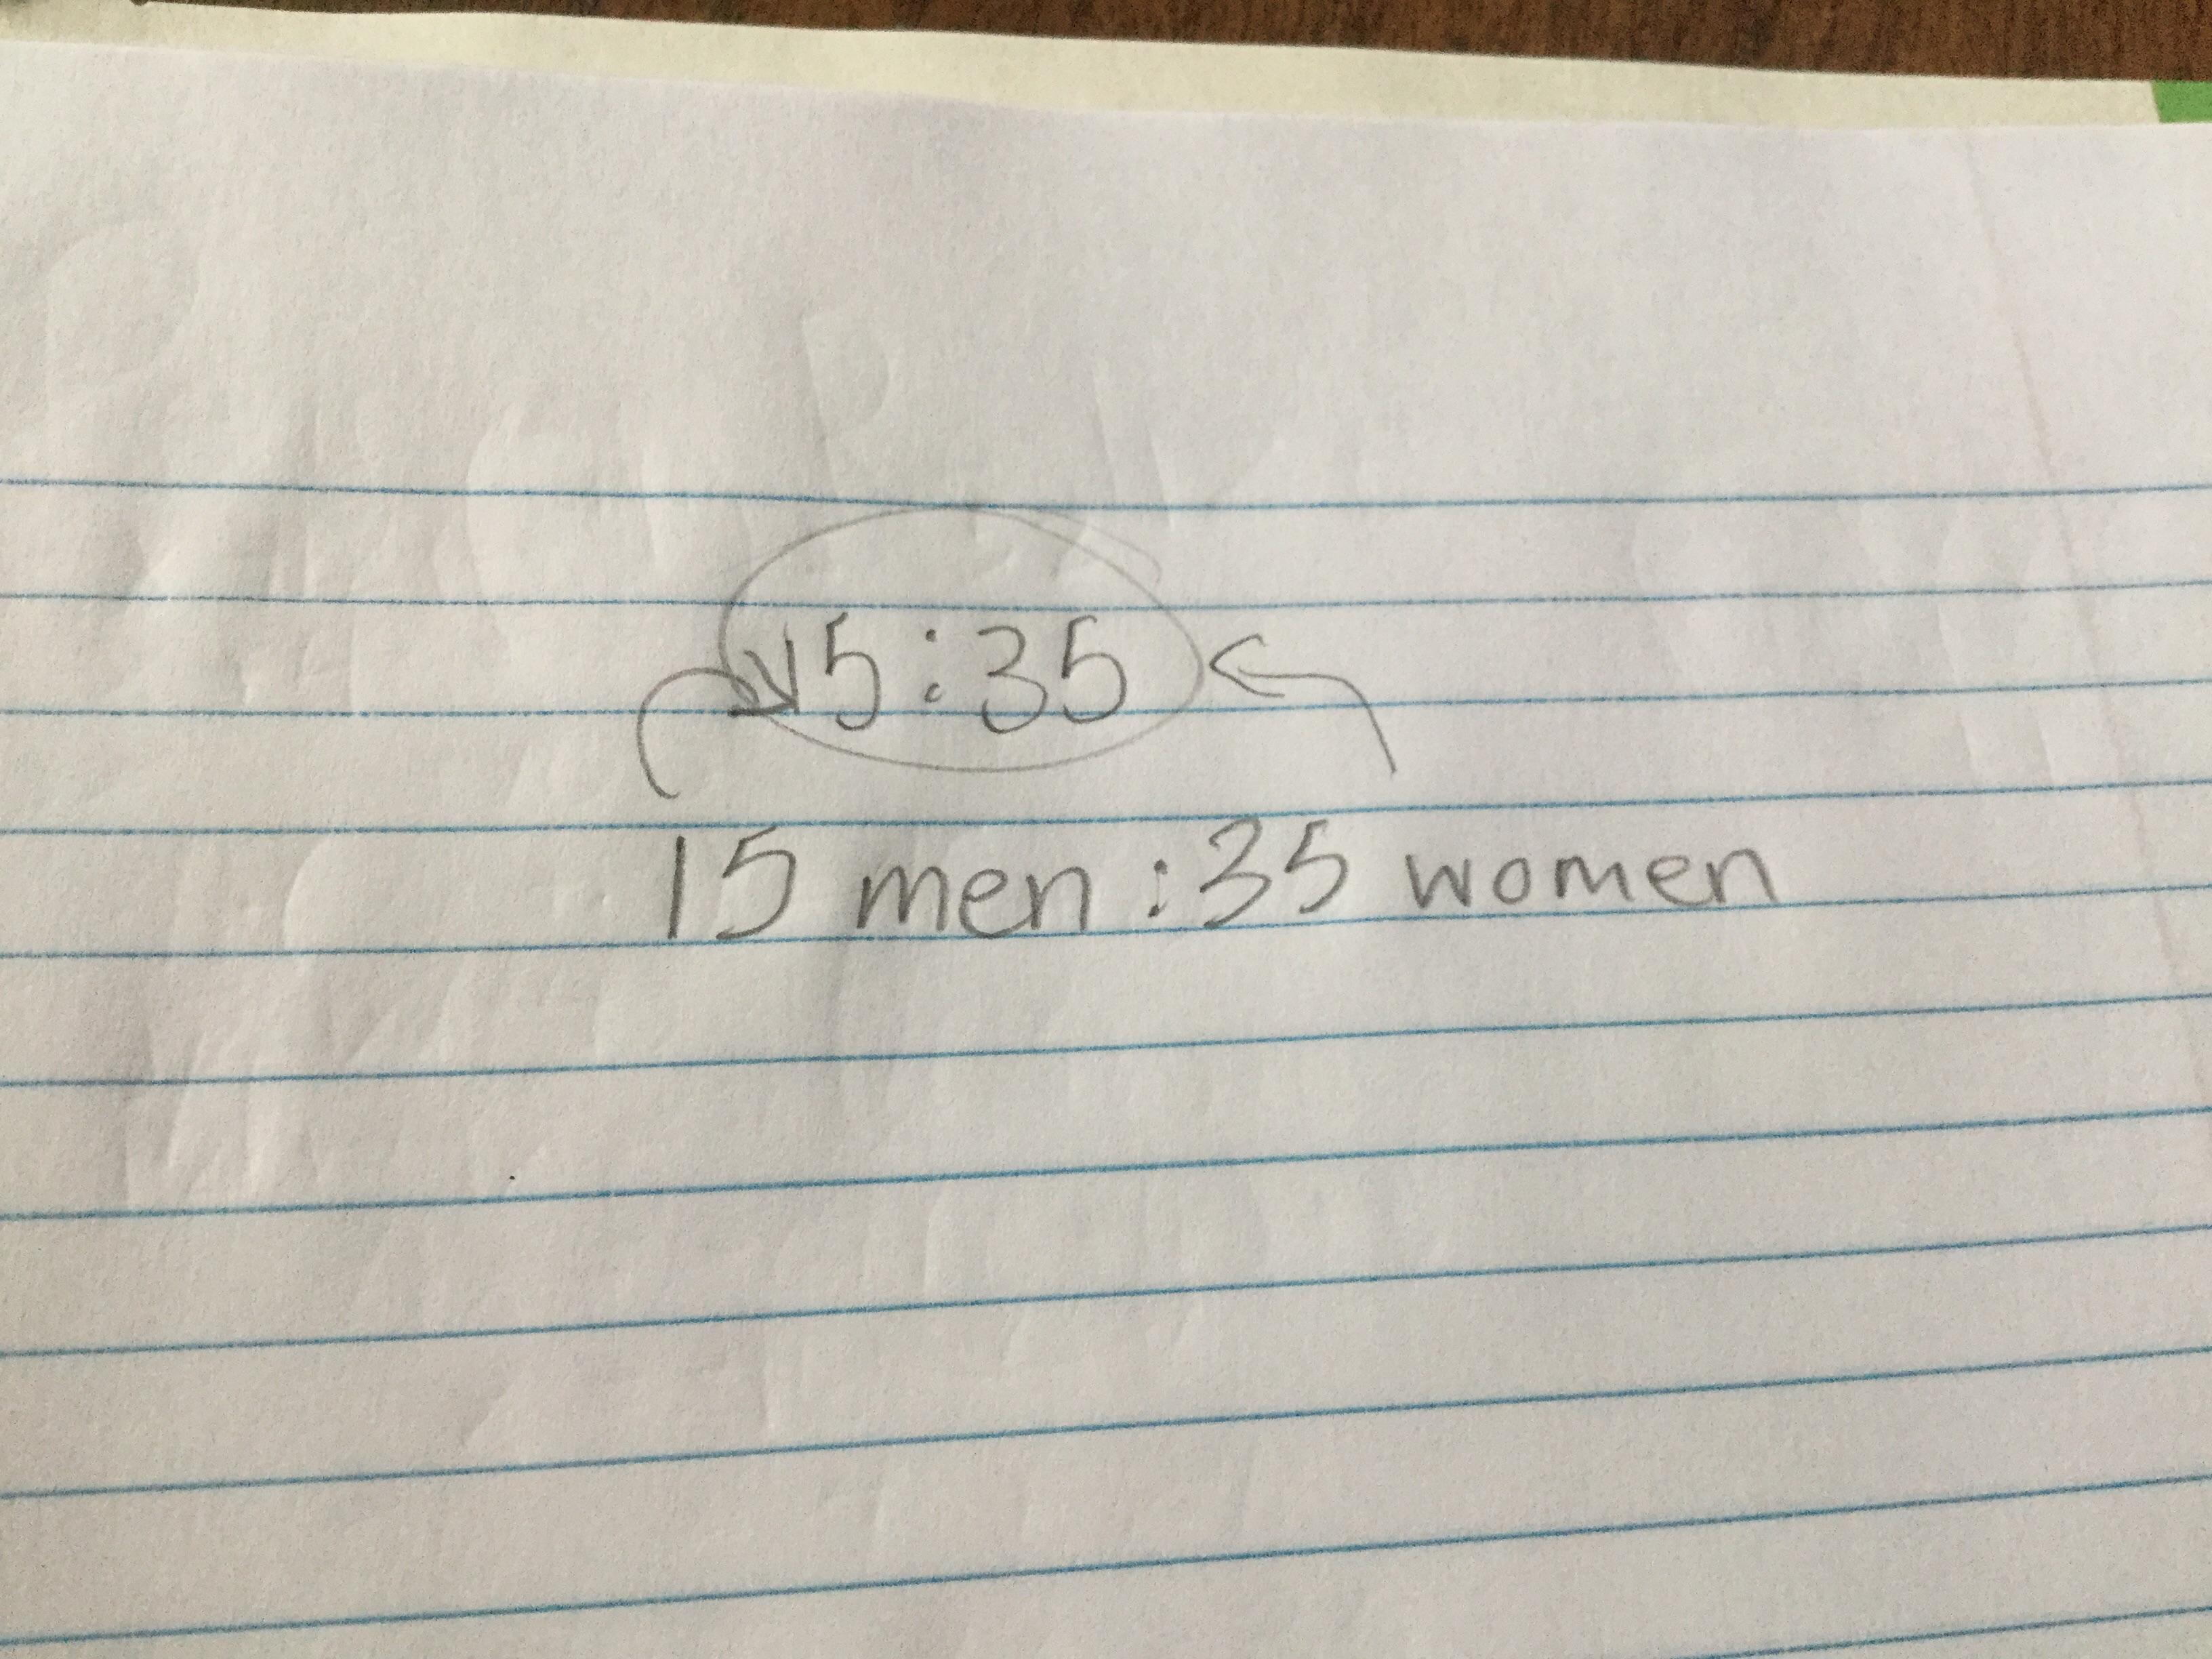 15:35
15 men : 35 women